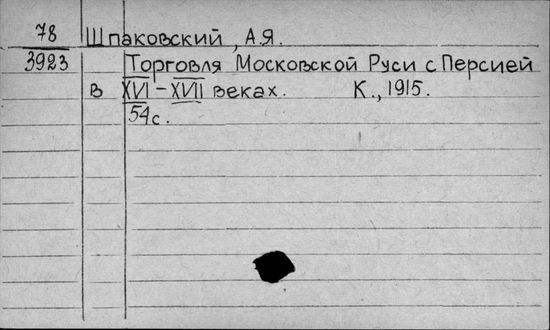 78 Шпаковский, А.Я.
3923 Торговля Московской Руси с Персией
в XVI-XVII веках. К., 1915.
54с.